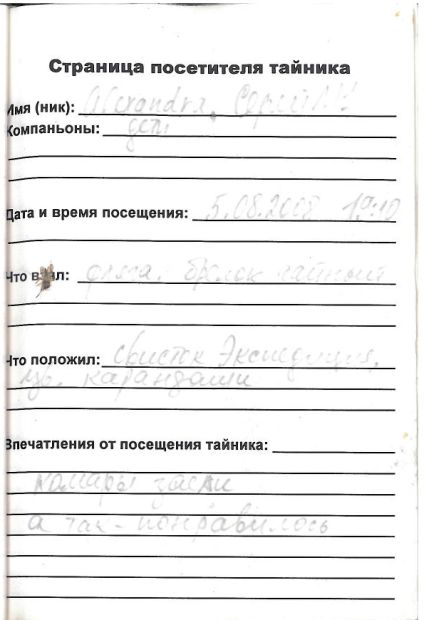 Страница посетителя тайника
Имя (ник): Alexandra, Сергей
Компаньоны: дети
Дата и время посещения: 5.08.2008 19:10
Что взял: брелок чайный
Что положил: свисток Экспедиция,
цв. карандаши
Впечатления от посещения тайника:
комары заели
а так - понравилось